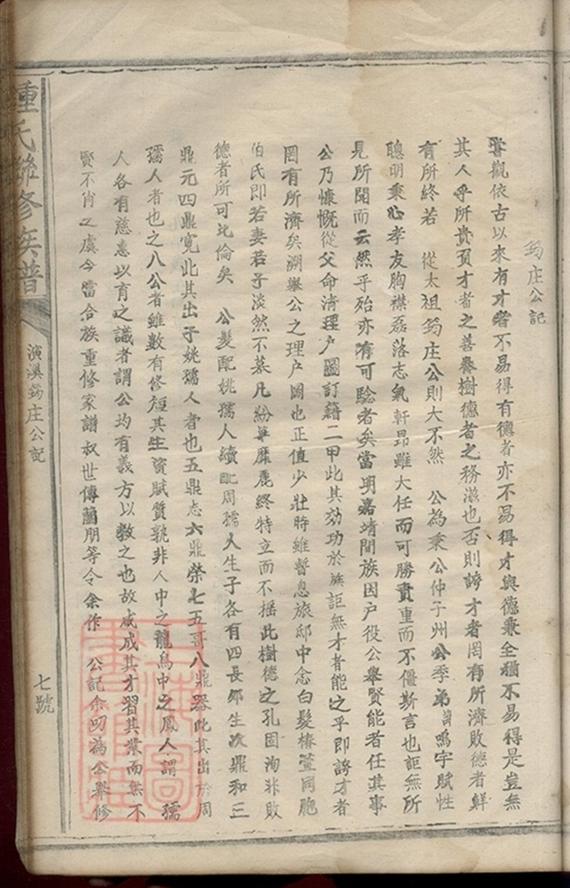 筠庄公記
嘗觀依古以來有才者不易得有德者亦不易得才與德兼全猶不易得是豈無
其人乎所貴負才者之善養樹德者之務滋也否則誇才者罔有所濟敗德者鮮
有所終若 從太祖筠庄公則大不然 公為秉公仲子州公季弟 鳴宇賦性
聰明秉心孝友胸襟磊落志氣軒昂雖大任而可勝貴重而不僵斯言也詎無所
見所聞而云然乎殆亦有可驗者矣當明嘉靖間族因户役公舉賢能者任其事
公乃慷慨從父命清理户圖訂籍二甲此其効功於無詎無才者能之乎即誇才者
罔有所濟矣溯舉公之理户圖也正值少壯時維暫息旅邸中念白髮椿萱同胞
伯氏即若妻若子淡然不慕凡紛華靡麗終特立而不摇此樹德之孔固洵非敗
德者所可比倫矣 公髮配姚孺人續配周孺人生子各有四長郷生次鼎和三
鼎元四鼎寛此其出于姚孺人者也五鼎志六鼎榮七五哥八鼎器此其出於周
孺人者也之八公者雖数有修短其生資賦質孰非人中之龍鳥中之鳳人謂 孺
人各有慈惠以育之議者謂公均有義方以教之也故咸成其才習其業而無不
賢不肖之虞今當合族重修家譜叔世傳蘭朋等令余作 公記余叨為公舉修
鍾氏聯修族譜
演溪筠庄公記
七號